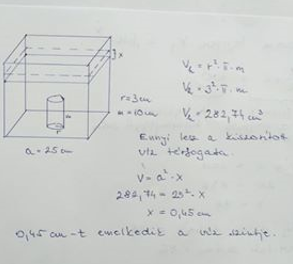 x
r = 3 cm
m = 10 cm
a = 25 cm
V_k = r² · π · m
V_k = 3² · π · m
V_k = 282,74 cm³
Ennyi lesz a kiszorított
víz térfogata.
V = a² · x
282,74 = 25² · x
x = 0,45 cm
0,45 cm-t emelkedik a víz szintje.